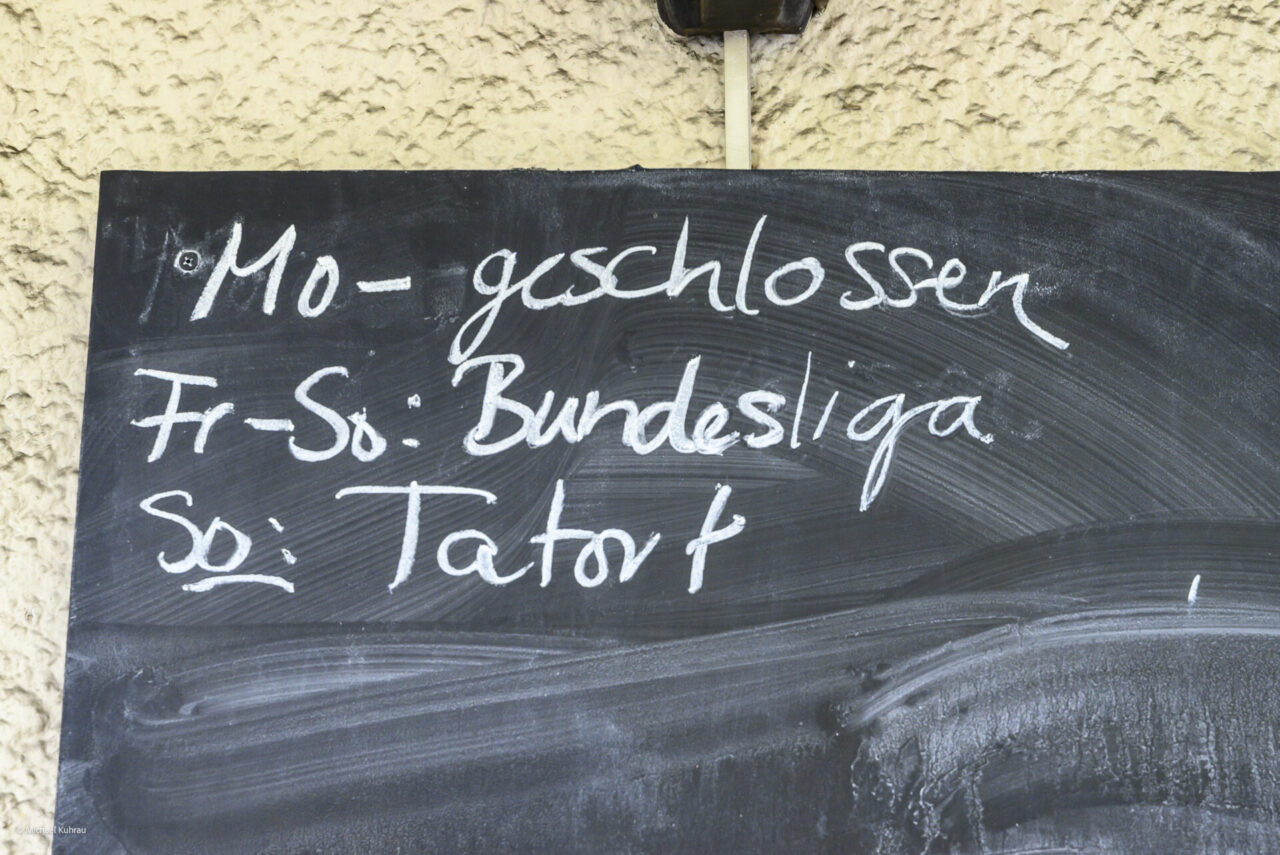 Mo- geschlossen
Fr-So: Bundesliga
So: Tatort
© Michael Kuhrau